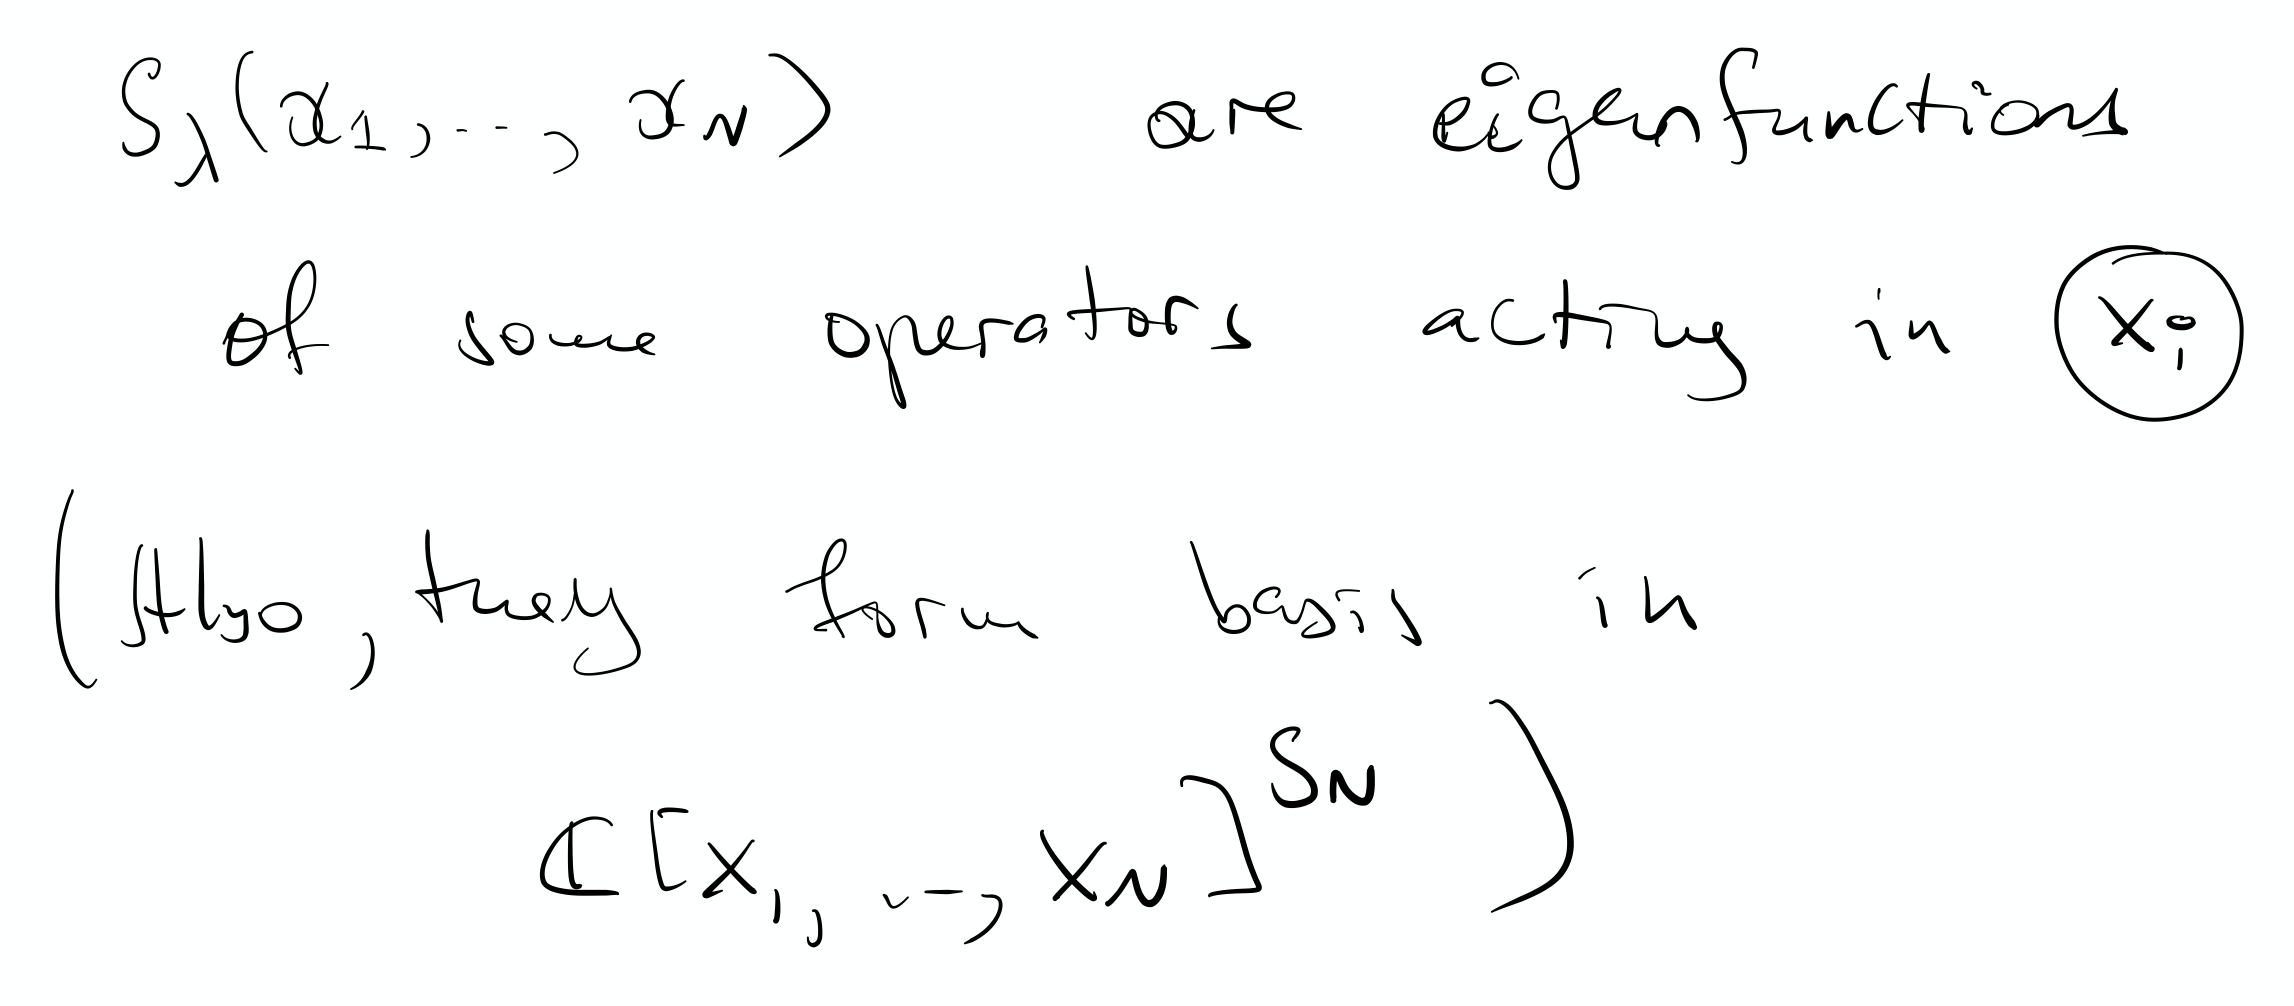 S_λ(x_1, ..., x_N) are eigenfunctions
of some operators acting in x_i
(Also, they form basis in
ℂ[x_1, ..., x_N]^{S_N})